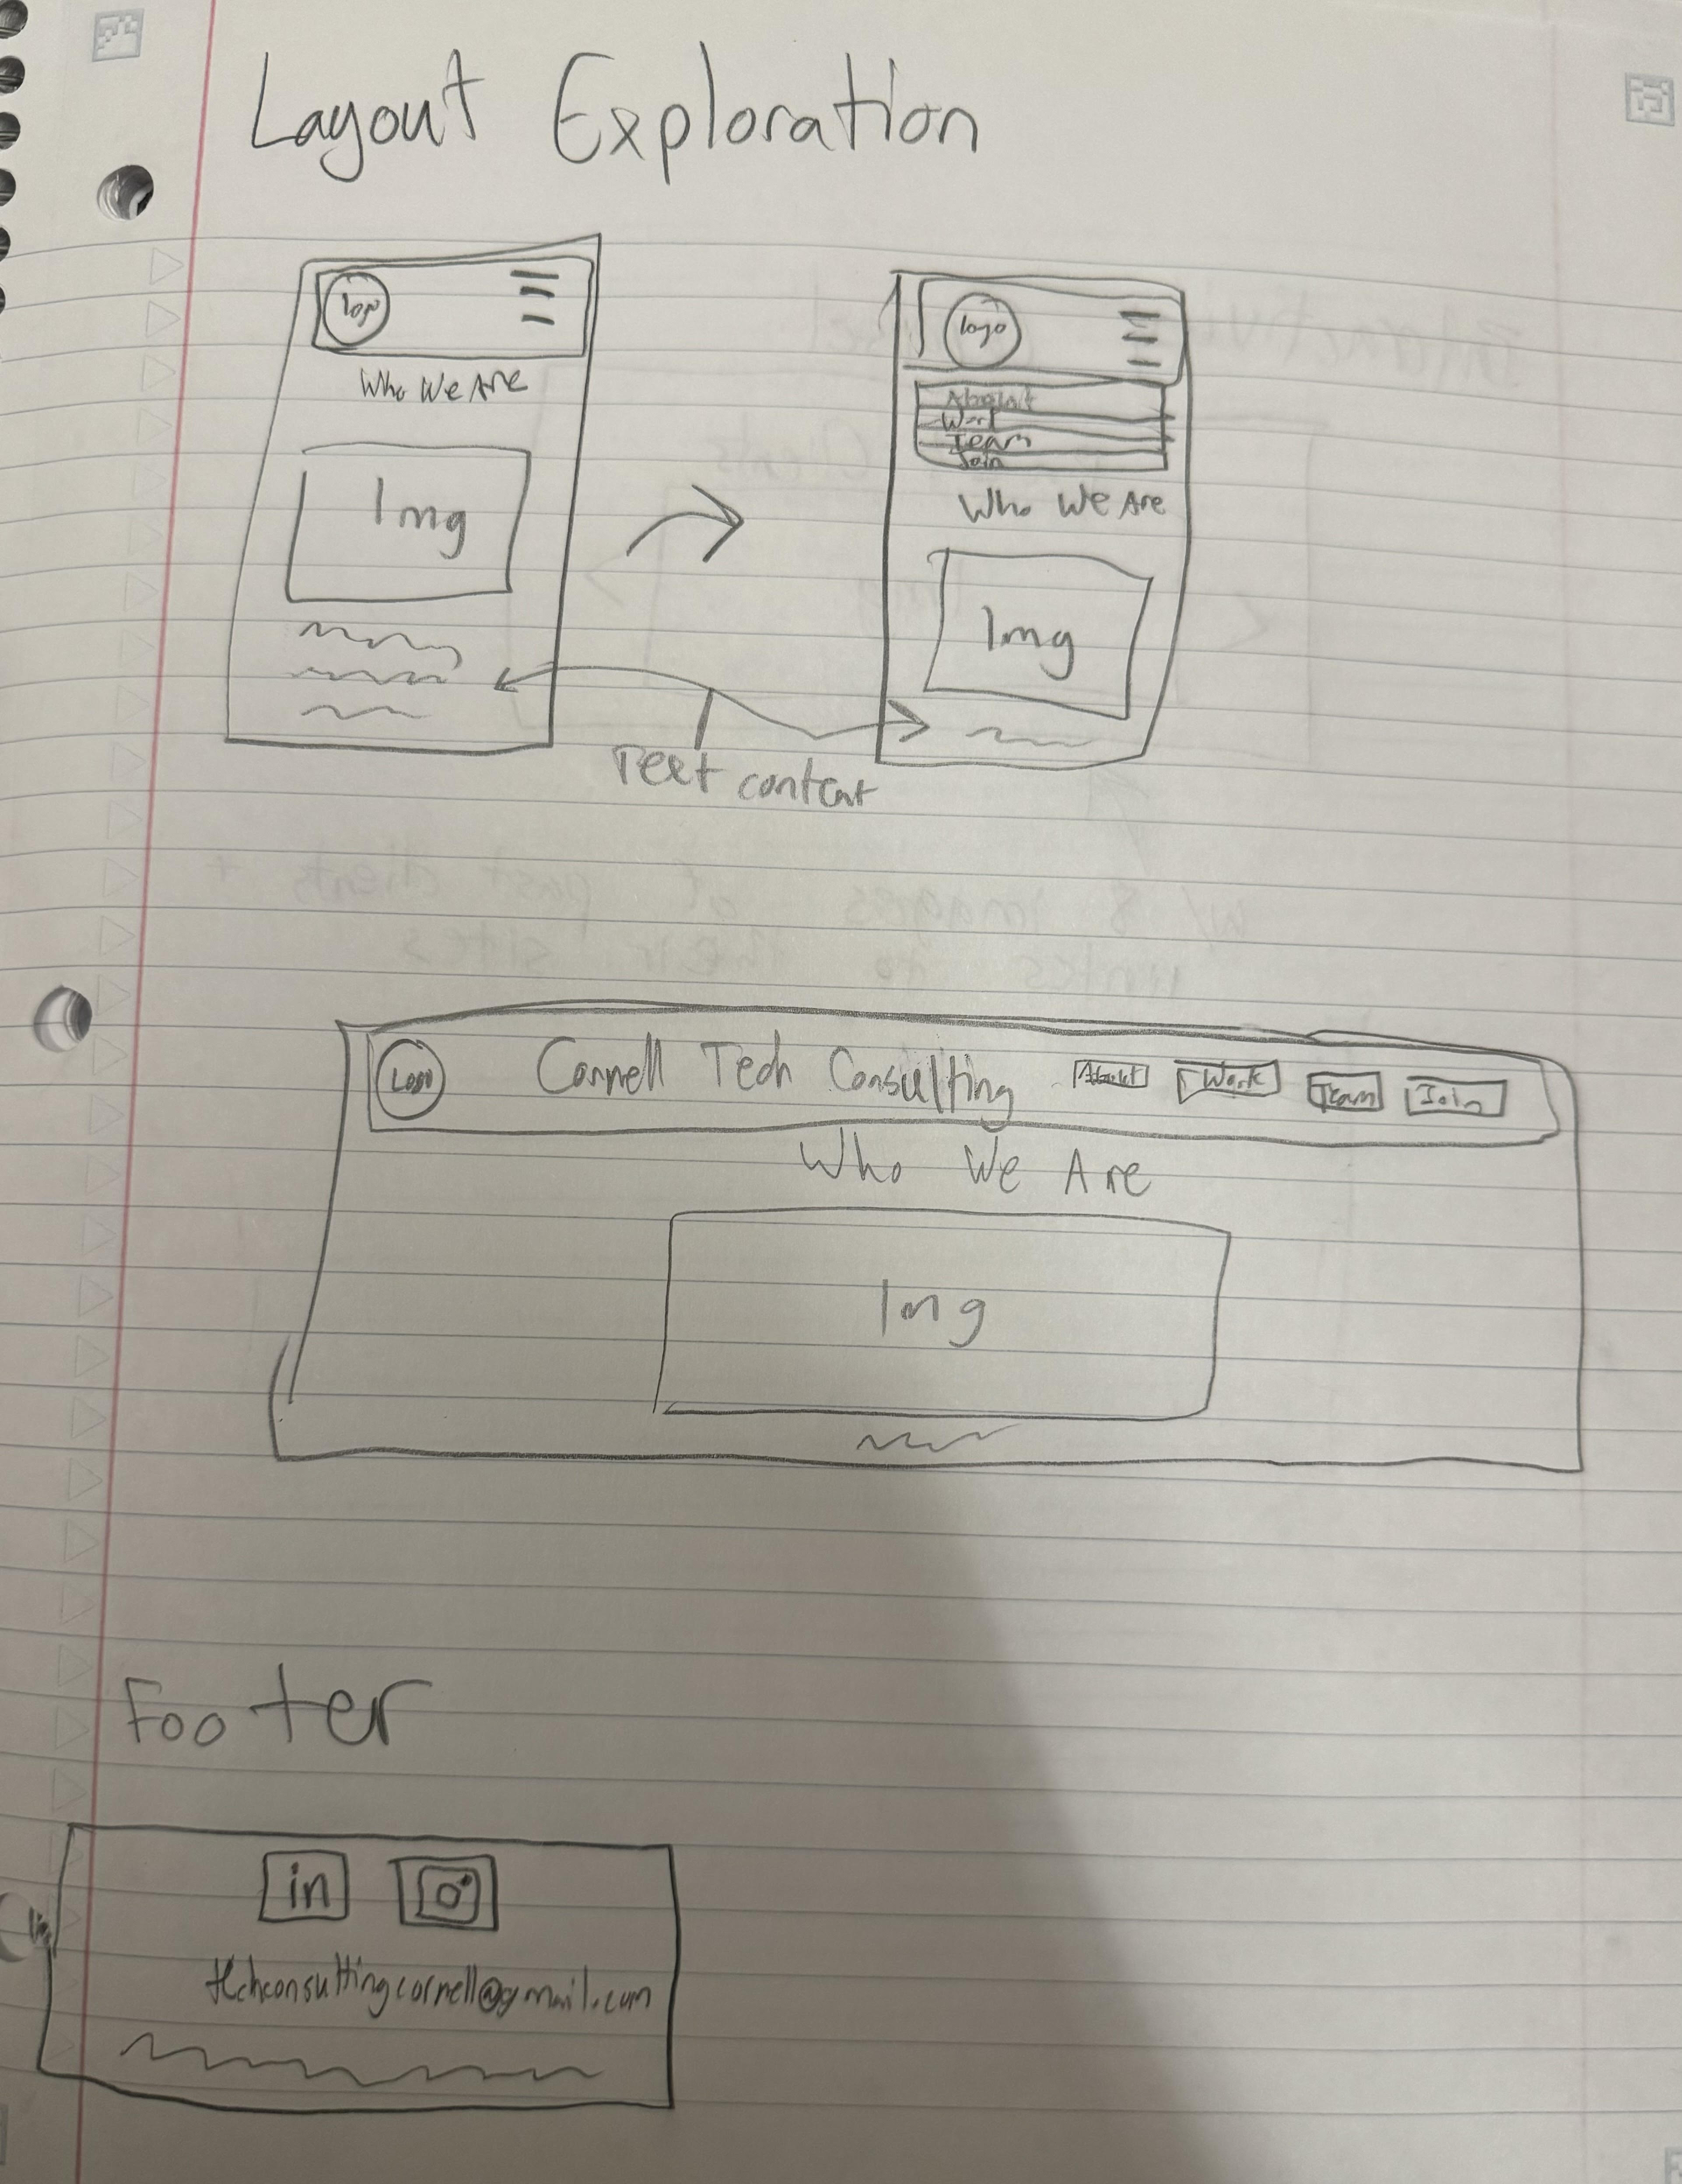 Layout Exploration
logo
Who We Are
Img
logo
About
Work
Team
Join
Who We Are
Img
Text content
Logo
Cornell Tech Consulting
About
Work
Team
Join
Who We Are
Img
Footer
in
techconsultingcornell@gmail.com